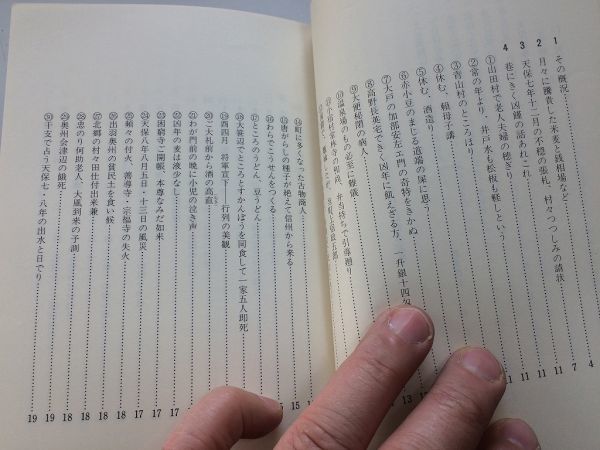 1 その概況……4
2 月々に騰費した米麦と銭相場など……7
3 天保七年十二月の不穏の張札、村々つつしみの請状……11
4 巷にきく凶饉の話あれこれ……11
① 山田村で老人夫婦の穂ぎり……11
② 常の年より、井戸水も松板も軽しという……
③ 青山村のところほり……
④ 休む、頼母子講……
⑤ 休む、酒造り……
⑥ 赤小豆のまじる道端の屎に思う……
⑦ 大戸の加部安左エ門の奇特をきかぬ……
⑧ 高野長英宅でき、凶年に飢えざる方、一升銀十四匁
⑨ 大便秘閉の病人……
⑩ 温泉場のもの必至に難儀……
⑭ 町に多くなった古物商人……
⑮ 唐がらしの種子が絶えて信州から来る……15
⑯ わらでこうせんをつくる……
⑰ ところのうどん、豆うどん……
⑱ 大笹辺でところとすかんぽうを同食して一家五人即死……
⑲ 酉四月 将軍宣下――行列の美観……
⑳ ご大札前から酒の高直……
㉑ わが門前の暁に小児の泣き声……17
㉒ 凶年の麦は液少なし……17
㉓ 因窮寺ご開帳、本尊なみだ如来……17
㉔ 天保八年八月五日・十三日の風災……17
㉕ 頻々の付火、善導寺・宗福寺の失火……18
㉖ 出羽奥州の貧民土を食い候……18
㉗ 北郷の村々田仕付出来兼……18
㉘ 忠のり何助老人、大風到来の予測……18
㉙ 奥州会津辺の餓死……19
㉚ 干支で占う天保七・八年の出水と日でり……19